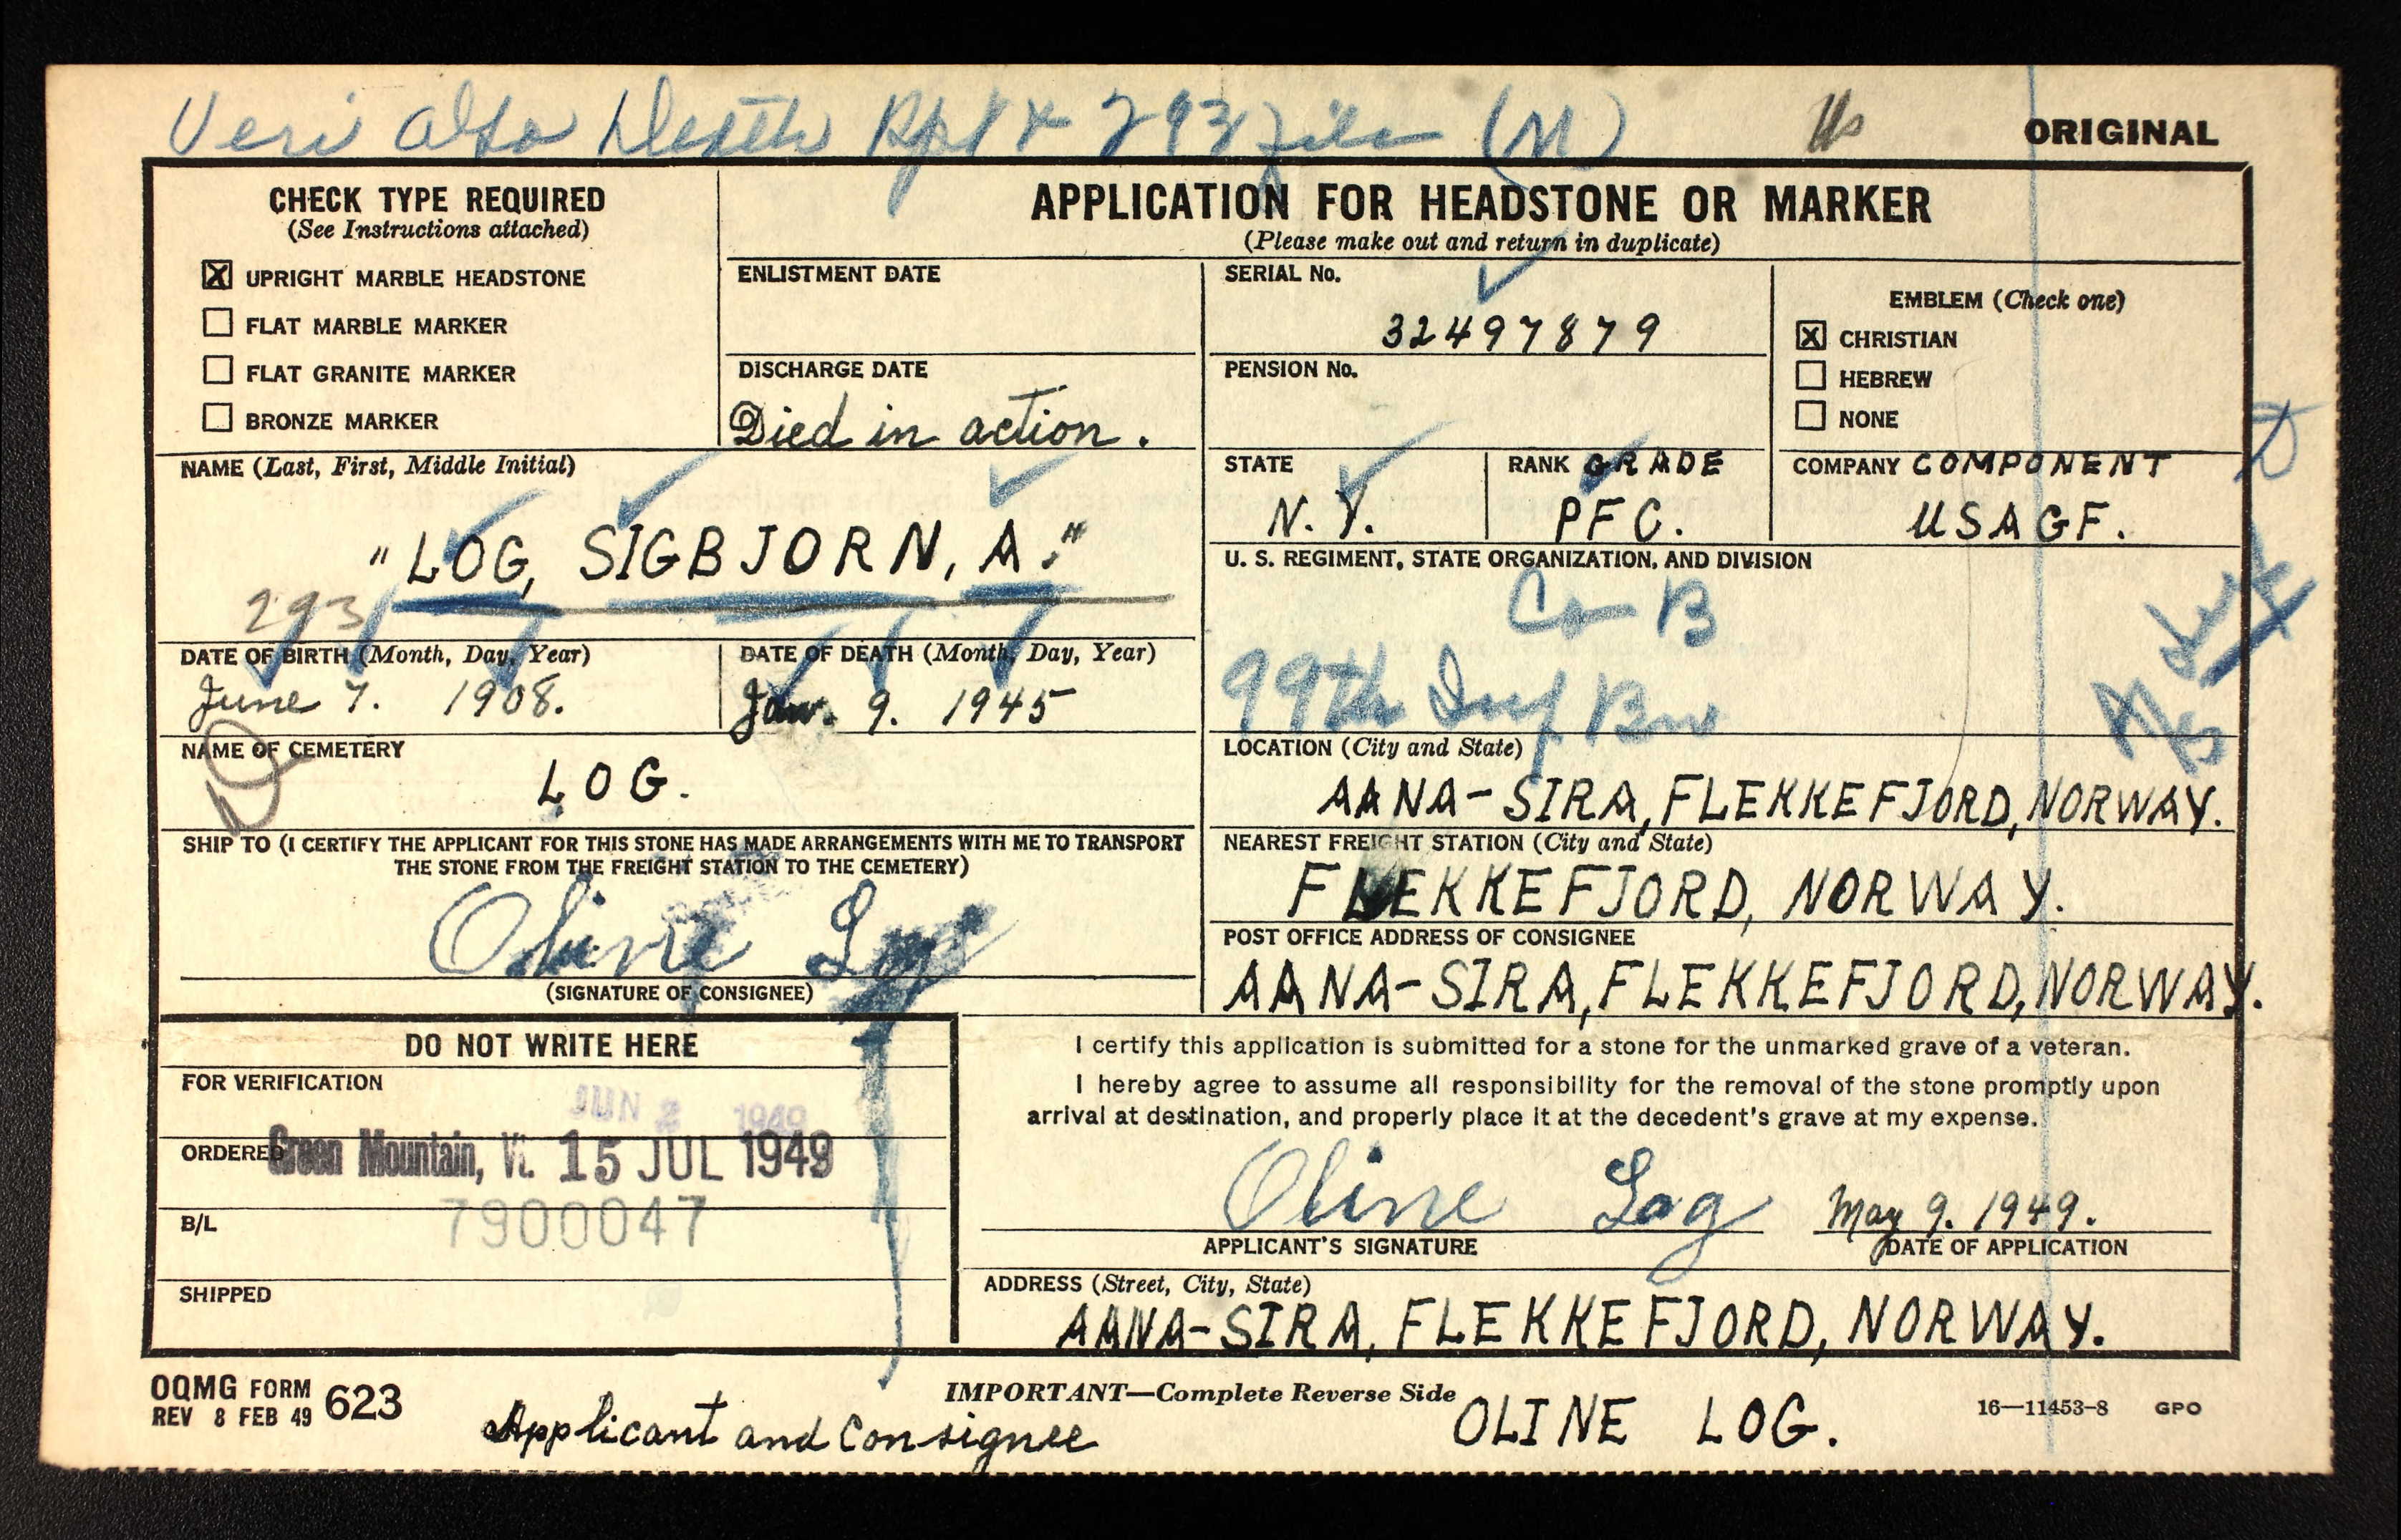 Veri also Death Rpt & 293 file (M)
ORIGINAL
CHECK TYPE REQUIRED
(See Instructions attached)
X UPRIGHT MARBLE HEADSTONE
FLAT MARBLE MARKER
FLAT GRANITE MARKER
BRONZE MARKER
APPLICATION FOR HEADSTONE OR MARKER
(Please make out and return in duplicate)
ENLISTMENT DATE
DISCHARGE DATE
Died in action.
SERIAL No.
32497879
PENSION No.
EMBLEM (Check one)
X CHRISTIAN
HEBREW
NONE
NAME (Last, First, Middle Initial)
"LOG, SIGBJORN, A."
293
STATE
N.Y.
RANK GRADE
PFC.
COMPANY COMPONENT
USAGF.
U. S. REGIMENT, STATE ORGANIZATION, AND DIVISION
Co B
99th Inf Bn
DATE OF BIRTH (Month, Day, Year)
June 7. 1908.
DATE OF DEATH (Month, Day, Year)
Jan. 9. 1945
NAME OF CEMETERY
LOG.
LOCATION (City and State)
AANA-SIRA, FLEKKEFJORD, NORWAY.
SHIP TO (I CERTIFY THE APPLICANT FOR THIS STONE HAS MADE ARRANGEMENTS WITH ME TO TRANSPORT
THE STONE FROM THE FREIGHT STATION TO THE CEMETERY)
Oline Log
(SIGNATURE OF CONSIGNEE)
NEAREST FREIGHT STATION (City and State)
FLEKKEFJORD, NORWAY.
POST OFFICE ADDRESS OF CONSIGNEE
AANA-SIRA, FLEKKEFJORD, NORWAY.
DO NOT WRITE HERE
FOR VERIFICATION
JUN 2 1949
ORDERED Green Mountain, Vt. 15 JUL 1949
B/L
7900047
SHIPPED
I certify this application is submitted for a stone for the unmarked grave of a veteran.
I hereby agree to assume all responsibility for the removal of the stone promptly upon
arrival at destination, and properly place it at the decedent's grave at my expense.
Oline Log May 9. 1949.
APPLICANT'S SIGNATURE DATE OF APPLICATION
ADDRESS (Street, City, State)
AANA-SIRA, FLEKKEFJORD, NORWAY.
OQMG FORM 623
REV 8 FEB 49
IMPORTANT—Complete Reverse Side
16—11453-8 GPO
Applicant and Consignee OLINE LOG.